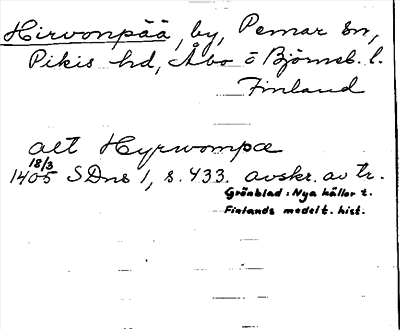 Hirvonpää, by, Pemar sn,
Pikis hd, Åbo o Björneb. l.
Finland
alt Hyrwompæ
18/3
1405 SDns 1, s. 433. avskr. av tr.
Grönblad: Nya källor t.
Finlands medelt. hist.